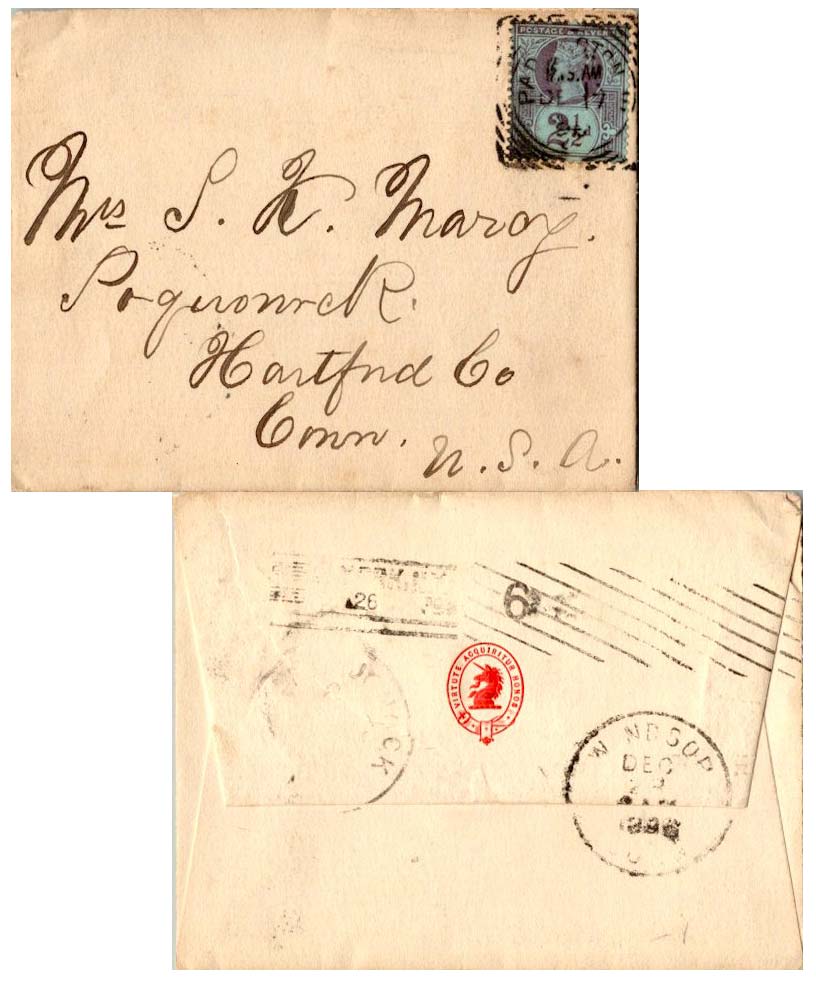 POSTAGE & REVEN
PAD GTON
AM
DE 17
2½d
Mrs S. K. Marcy.
Poquonock.
Hartford Co
Conn.
U. S. A.
26
6
VIRTUTE ACQUIRITUR HONOS
WICK
WINDSOR
DEC